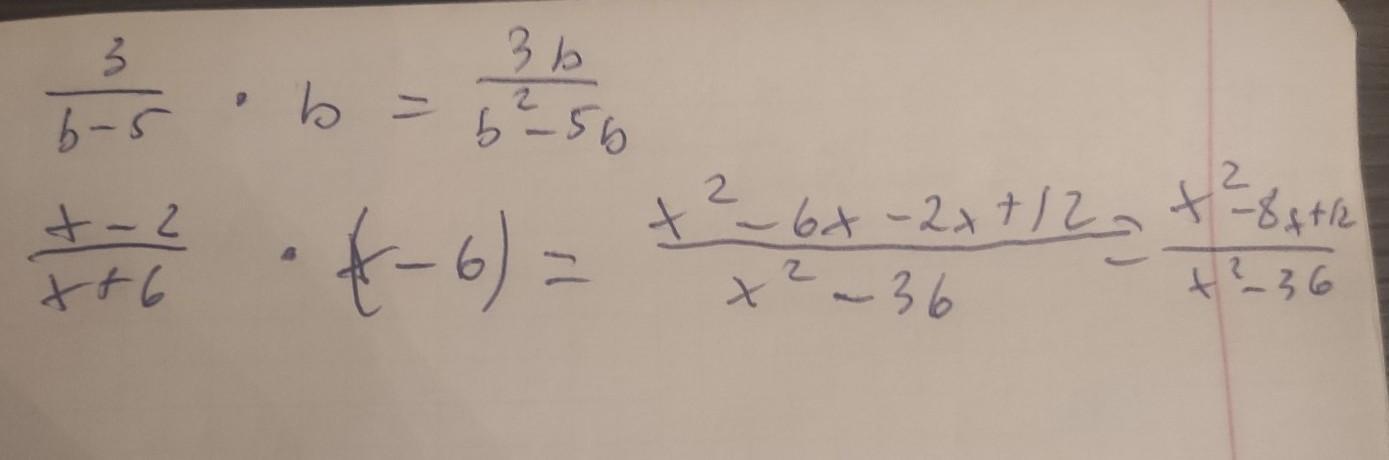 3/(b-5) · b = 3b/(b²-5b)
(x-2)/(x+6) · (x-6) = (x²-6x-2x+12)/(x²-36) = (x²-8x+12)/(x²-36)